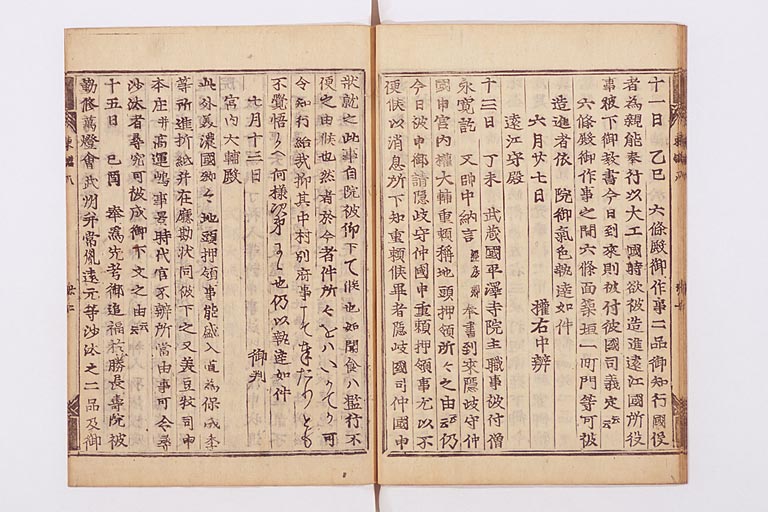 十一日 乙巳 六條殿御作事二品御知行國役
者為親能奉行以大工國時欲被造進遠江國所役
事被下御教書今日到來則被付彼國司義定云云
六條殿御作事之間六條面築垣一町門等可被
造進者依 院御氣色執達如件
六月廿七日 權右中辨
遠江守殿
十三日 丁未 武藏國平澤寺院主職事被付僧
永寛訖 又帥中納言 奉書到來隱岐守仲
國申宮内權大輔重頼稱地頭押領所々之由云云仍
今日被申御請隱岐守仲國申重頼押領事尤以不
便候以消息所下知重頼候畢者隱岐國司仲國申
狀就之此事自院被仰下て候也如聞食八濫行不
便定由候也然者於今者件所々をハいろてり可
令知行給哉抑其中村別府事
不覺悟 何樣 也仍以執達如件
七月十三日 御判
宮内大輔殿
此外美濃國 地頭押領事能盛入道為保成季
等所進折紙并在廳勘狀同被下之又美豆牧司申
本庄并高運嶋事景時代官不辨所當由事可令尋
沙汰者尋究可被成御下文之由云云
十五日 己酉 奉為先考御追福於勝長壽院被
勤修萬燈會武州并常胤遠元等沙汰之二品及御